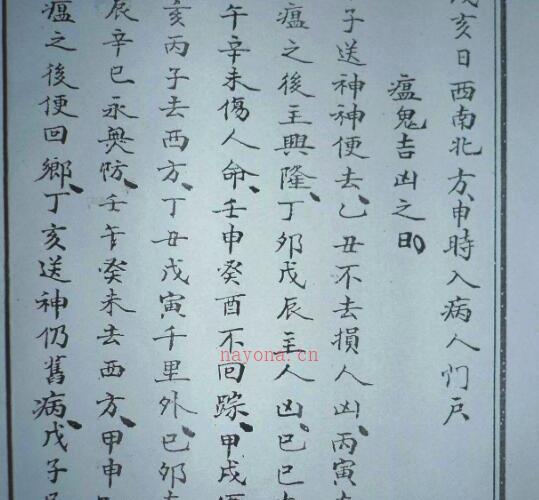 戊亥日西南北方、申時入病人门戸
瘟鬼吉凶之日
子送神神便去、乙丑不去損人凶、丙寅
瘟之後主興隆、丁夘戊辰主人凶、己巳
午辛未傷人命、壬申癸酉不回踪、甲戌
亥丙子去西方、丁丑戊寅千里外、己夘
辰辛巳永無妨、壬午癸未去西方、甲申
瘟之後便回鄉、丁亥送神仍舊病、戊子
nayona.cn